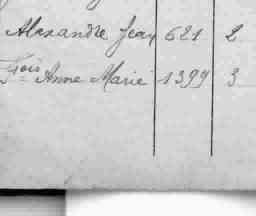 Alexandre Jean 621 2
Fois Anne Marie 1399 3